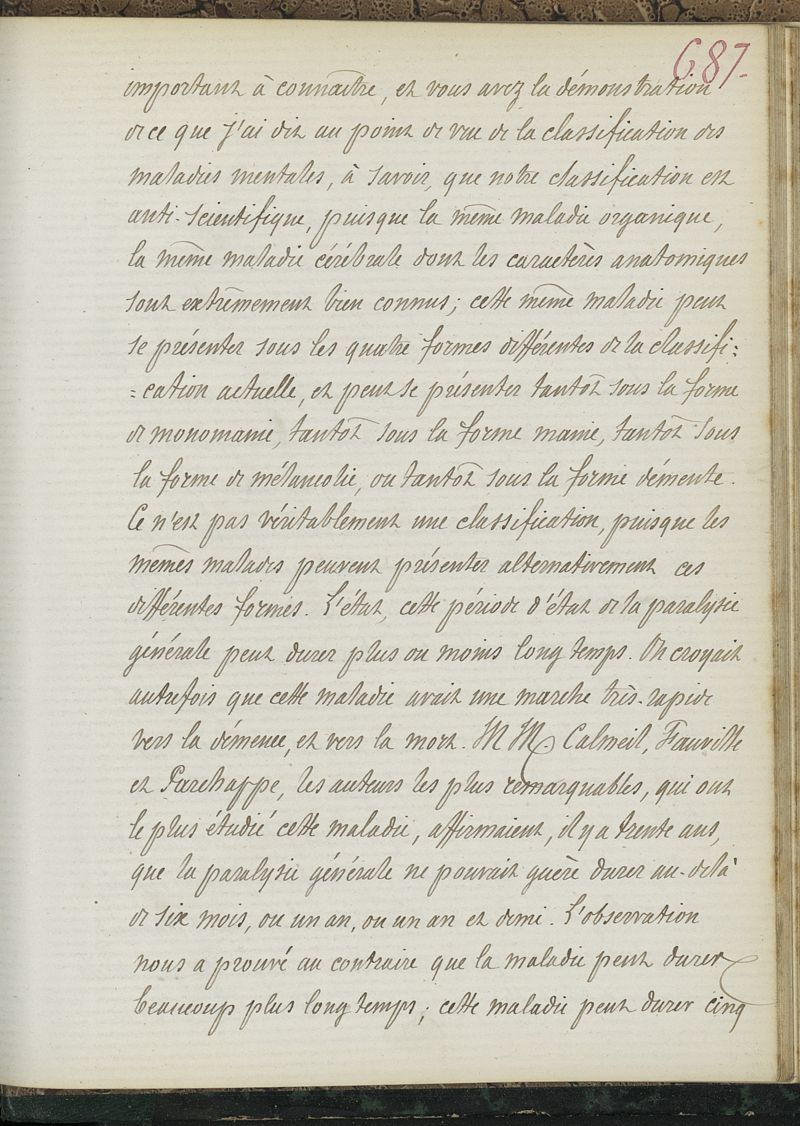 687.
important à connaître, et vous avez la démonstration
de ce que j'ai dit au point de vue de la classification des
maladies mentales, à savoir, que notre classification est
anti-scientifique, puisque la même maladie organique,
la même maladie cérébrale dont les caractères anatomiques
sont extrêmement bien connus ; cette même maladie peut
se présenter sous les quatre formes différentes de la classifi=
=cation actuelle, et peut se présenter tantôt sous la forme
de monomanie, tantôt sous la forme manie, tantôt sous
la forme de mélancolie, ou tantôt sous la forme démente.
Ce n'est pas véritablement une classification, puisque les
mêmes malades peuvent présenter alternativement ces
différentes formes. L'état, cette période d'état de la paralysie
générale peut durer plus ou moins long temps. On croyait
autrefois que cette maladie avait une marche très-rapide
vers la démence, et vers la mort. MM. Calmeil, Fauville
et Parchappe, les auteurs les plus remarquables, qui ont
le plus étudié cette maladie, affirmaient, il y a trente ans,
que la paralysie générale ne pouvait guère durer au-delà
de six mois, ou un an, ou un an et demi. L'observation
nous a prouvé au contraire que la maladie peut durer
beaucoup plus long temps ; cette maladie peut durer cinq